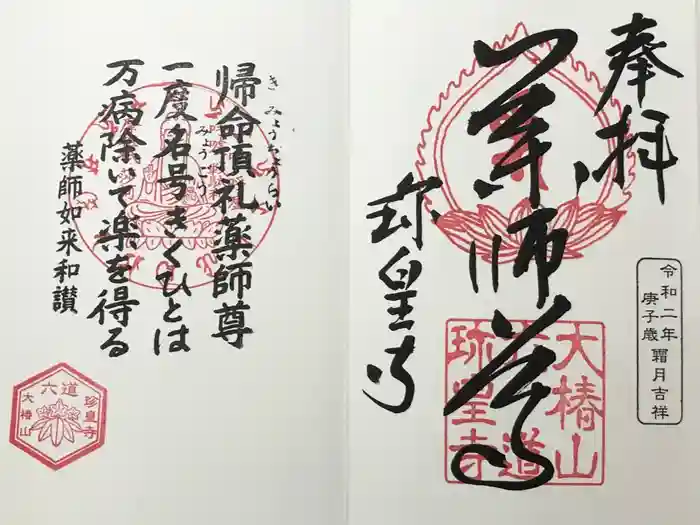 奉拝
薬師尊
珎皇寺
大椿山
六道
珎皇寺
令和二年
庚子歳 霜月吉祥
帰命頂礼薬師尊
きみょうちょうらい
一度名号きくひとは
みょうごう
万病除いて楽を得る
薬師如来和讃
六道
珍皇寺
大椿山